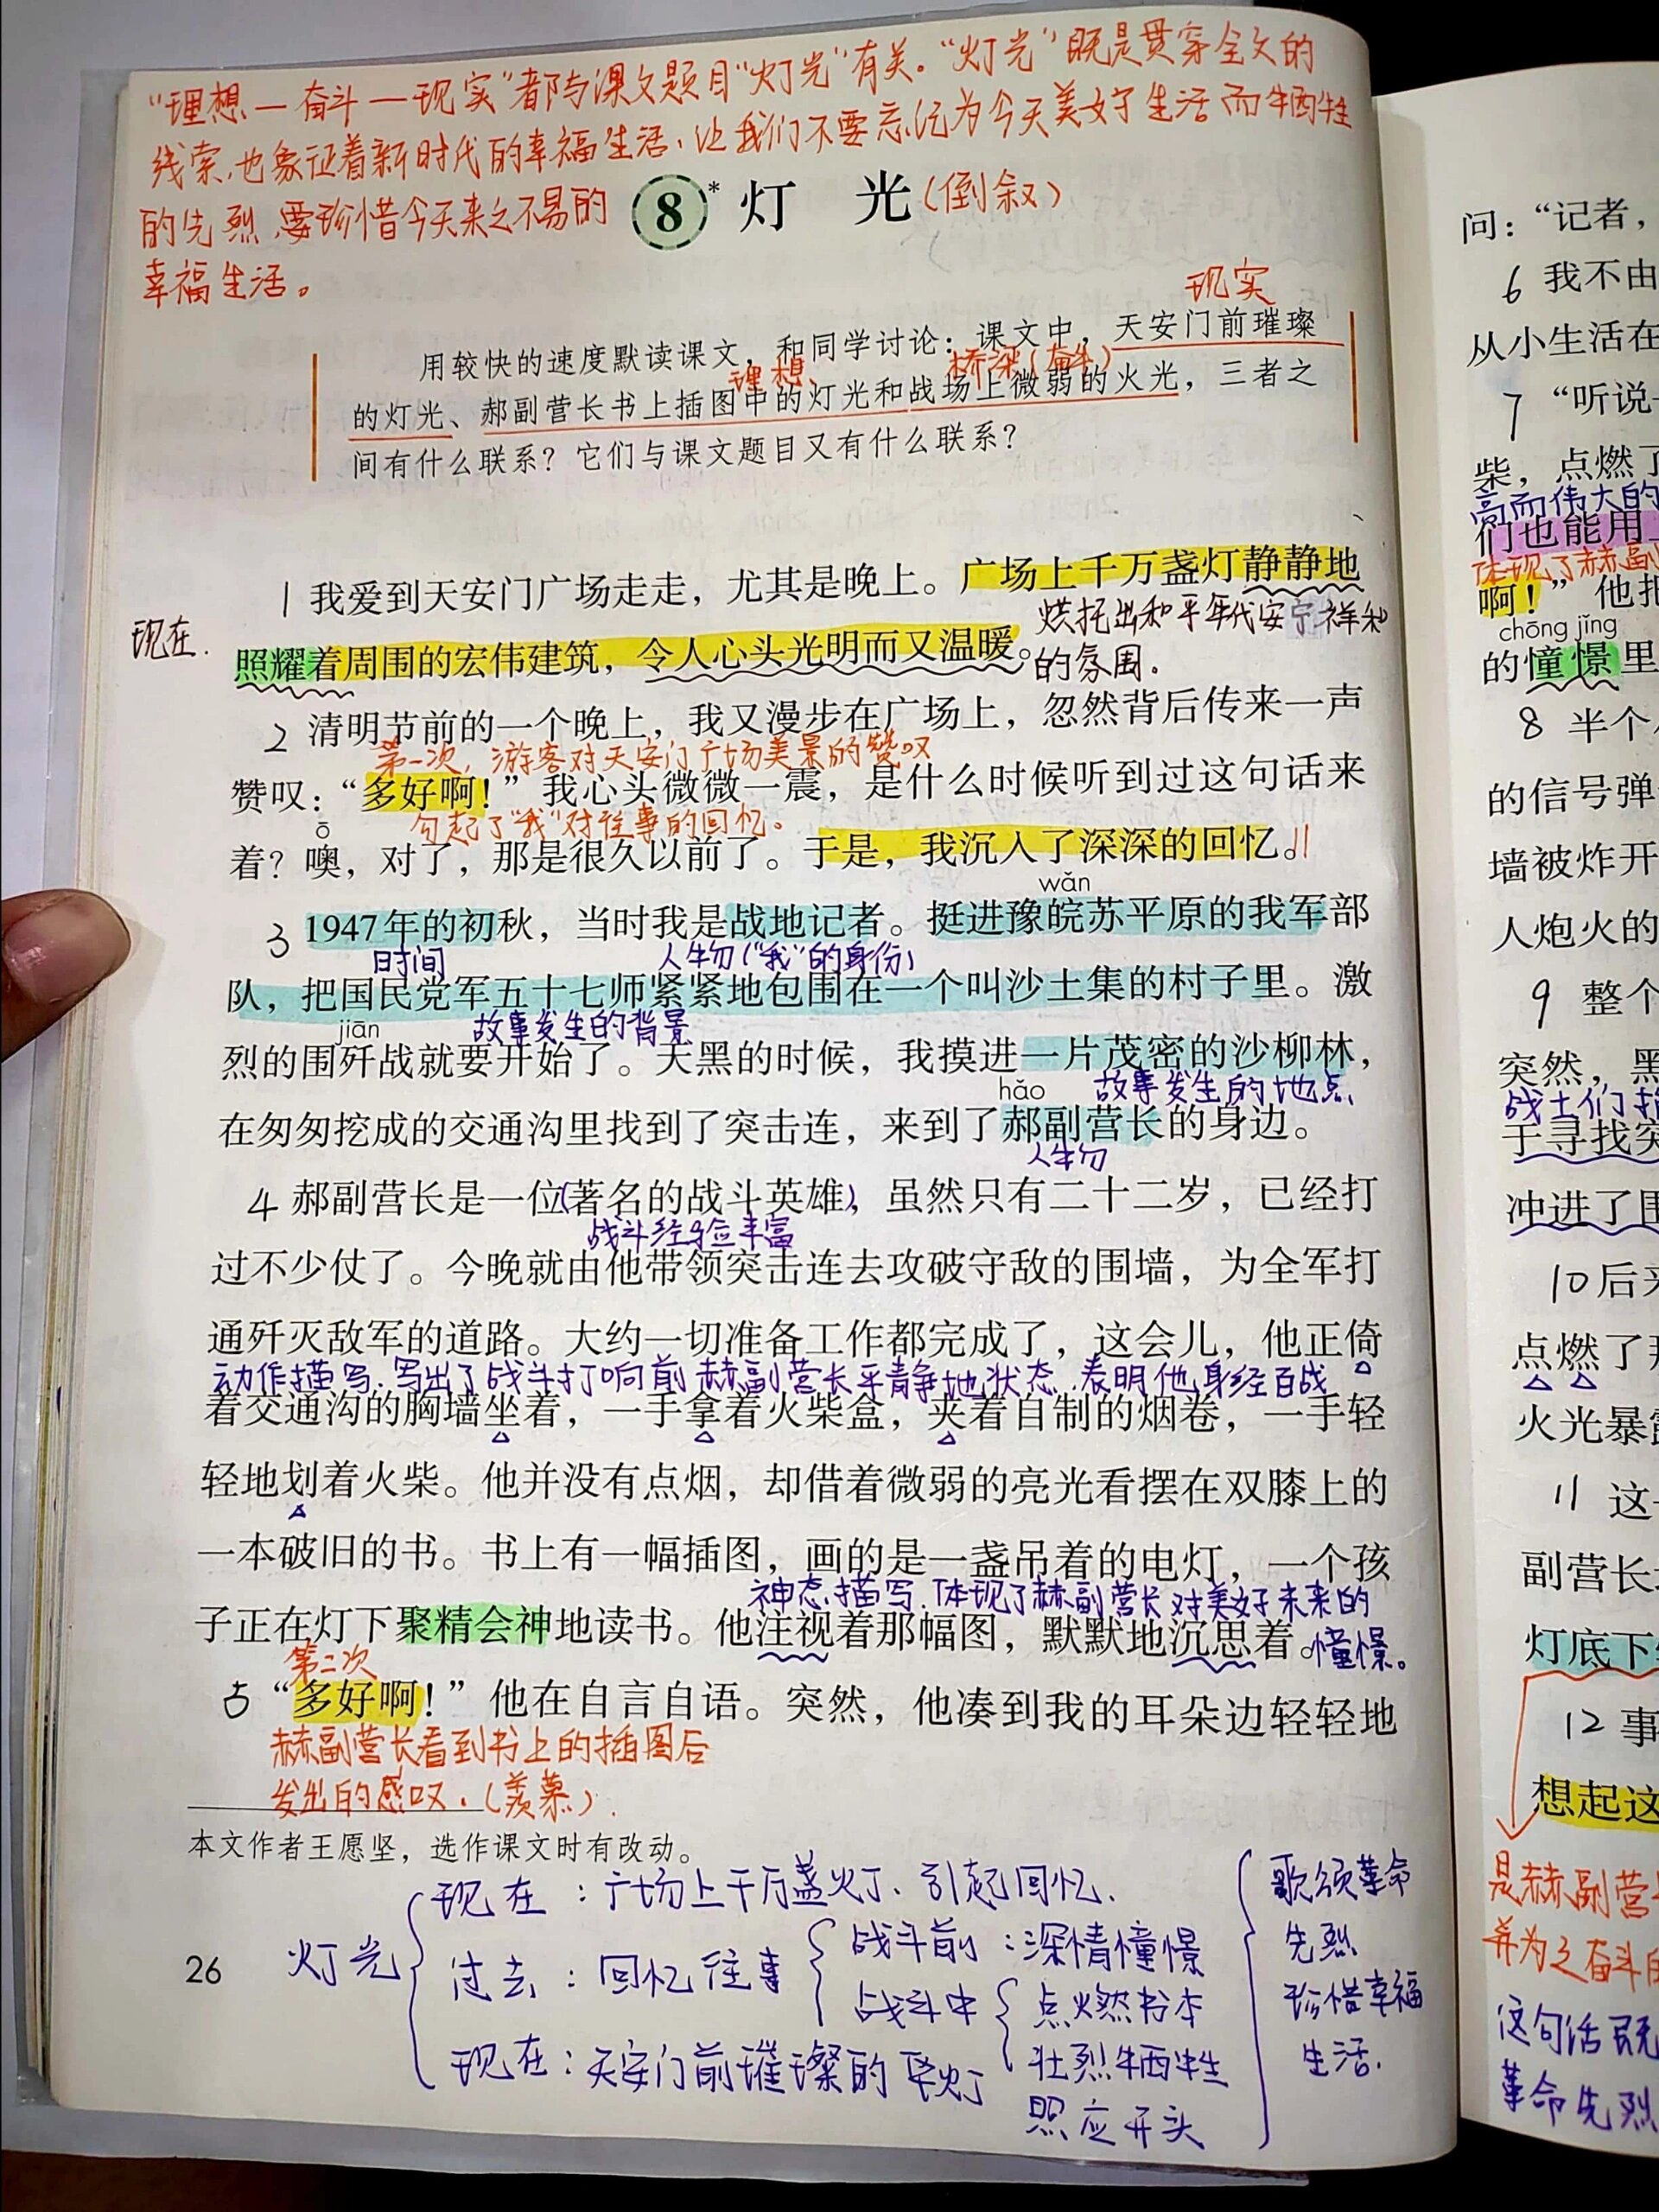 “理想—奋斗—现实”都与课文题目“灯光”有关。“灯光”既是贯穿全文的
线索,也象征着新时代的幸福生活,让我们不要忘记为今天美好生活而牺牲
的先烈,要珍惜今天来之不易的
幸福生活。
8* 灯 光(倒叙)
现实
用较快的速度默读课文,和同学讨论:课文中,天安门前璀璨
理想
桥梁(奋斗)
的灯光、郝副营长书上插图中的灯光和战场上微弱的火光,三者之
间有什么联系?它们与课文题目又有什么联系?
1 我爱到天安门广场走走,尤其是晚上。广场上千万盏灯静静地
现在.
烘托出和平年代安宁祥和
照耀着周围的宏伟建筑,令人心头光明而又温暖。
的氛围。
2 清明节前的一个晚上,我又漫步在广场上,忽然背后传来一声
第一次,游客对天安门广场美景的赞叹
赞叹:“多好啊!”我心头微微一震,是什么时候听到过这句话来
ō
勾起了“我”对往事的回忆。
着?噢,对了,那是很久以前了。于是,我沉入了深深的回忆。
wǎn
3 1947年的初秋,当时我是战地记者。挺进豫皖苏平原的我军部
时间
人物(“我”的身份)
队,把国民党军五十七师紧紧地包围在一个叫沙土集的村子里。激
jiān
故事发生的背景
烈的围歼战就要开始了。天黑的时候,我摸进一片茂密的沙柳林,
hǎo
故事发生的地点
在匆匆挖成的交通沟里找到了突击连,来到了郝副营长的身边。
人物
4 郝副营长是一位(著名的战斗英雄),虽然只有二十二岁,已经打
战斗经验丰富
过不少仗了。今晚就由他带领突击连去攻破守敌的围墙,为全军打
通歼灭敌军的道路。大约一切准备工作都完成了,这会儿,他正倚
动作描写,写出了战斗打响前赫副营长平静地状态,表明他身经百战
着交通沟的胸墙坐着,一手拿着火柴盒,夹着自制的烟卷,一手轻
轻地划着火柴。他并没有点烟,却借着微弱的亮光看摆在双膝上的
一本破旧的书。书上有一幅插图,画的是一盏吊着的电灯,一个孩
神态描写,体现了赫副营长对美好未来的
子正在灯下聚精会神地读书。他注视着那幅图,默默地沉思着。
憧憬。
第二次
5 “多好啊!”他在自言自语。突然,他凑到我的耳朵边轻轻地
赫副营长看到书上的插图后
发出的感叹.(羡慕).
本文作者王愿坚,选作课文时有改动。
灯光
现在:广场上千万盏灯、引起回忆.
过去:回忆往事
战斗前:深情憧憬
战斗中
点燃书本
壮烈牺牲
现在:天安门前璀璨的华灯
照应开头
歌颂革命
先烈
珍惜幸福
生活.
26
问:“记者,
6 我不由
从小生活在
7 “听说
柴,点燃了
高而伟大的
们也能用上
体现了赫副
啊!”他把
chōng jǐng
的憧憬里
8 半个
的信号弹
墙被炸开
人炮火的
9 整个
突然,黑
战士们
于寻找突
冲进了围
10 后来
点燃了那
火光暴露
11 这
副营长
灯底下
12 事
想起这
是赫副营
并为之奋斗
这句话既
革命先烈